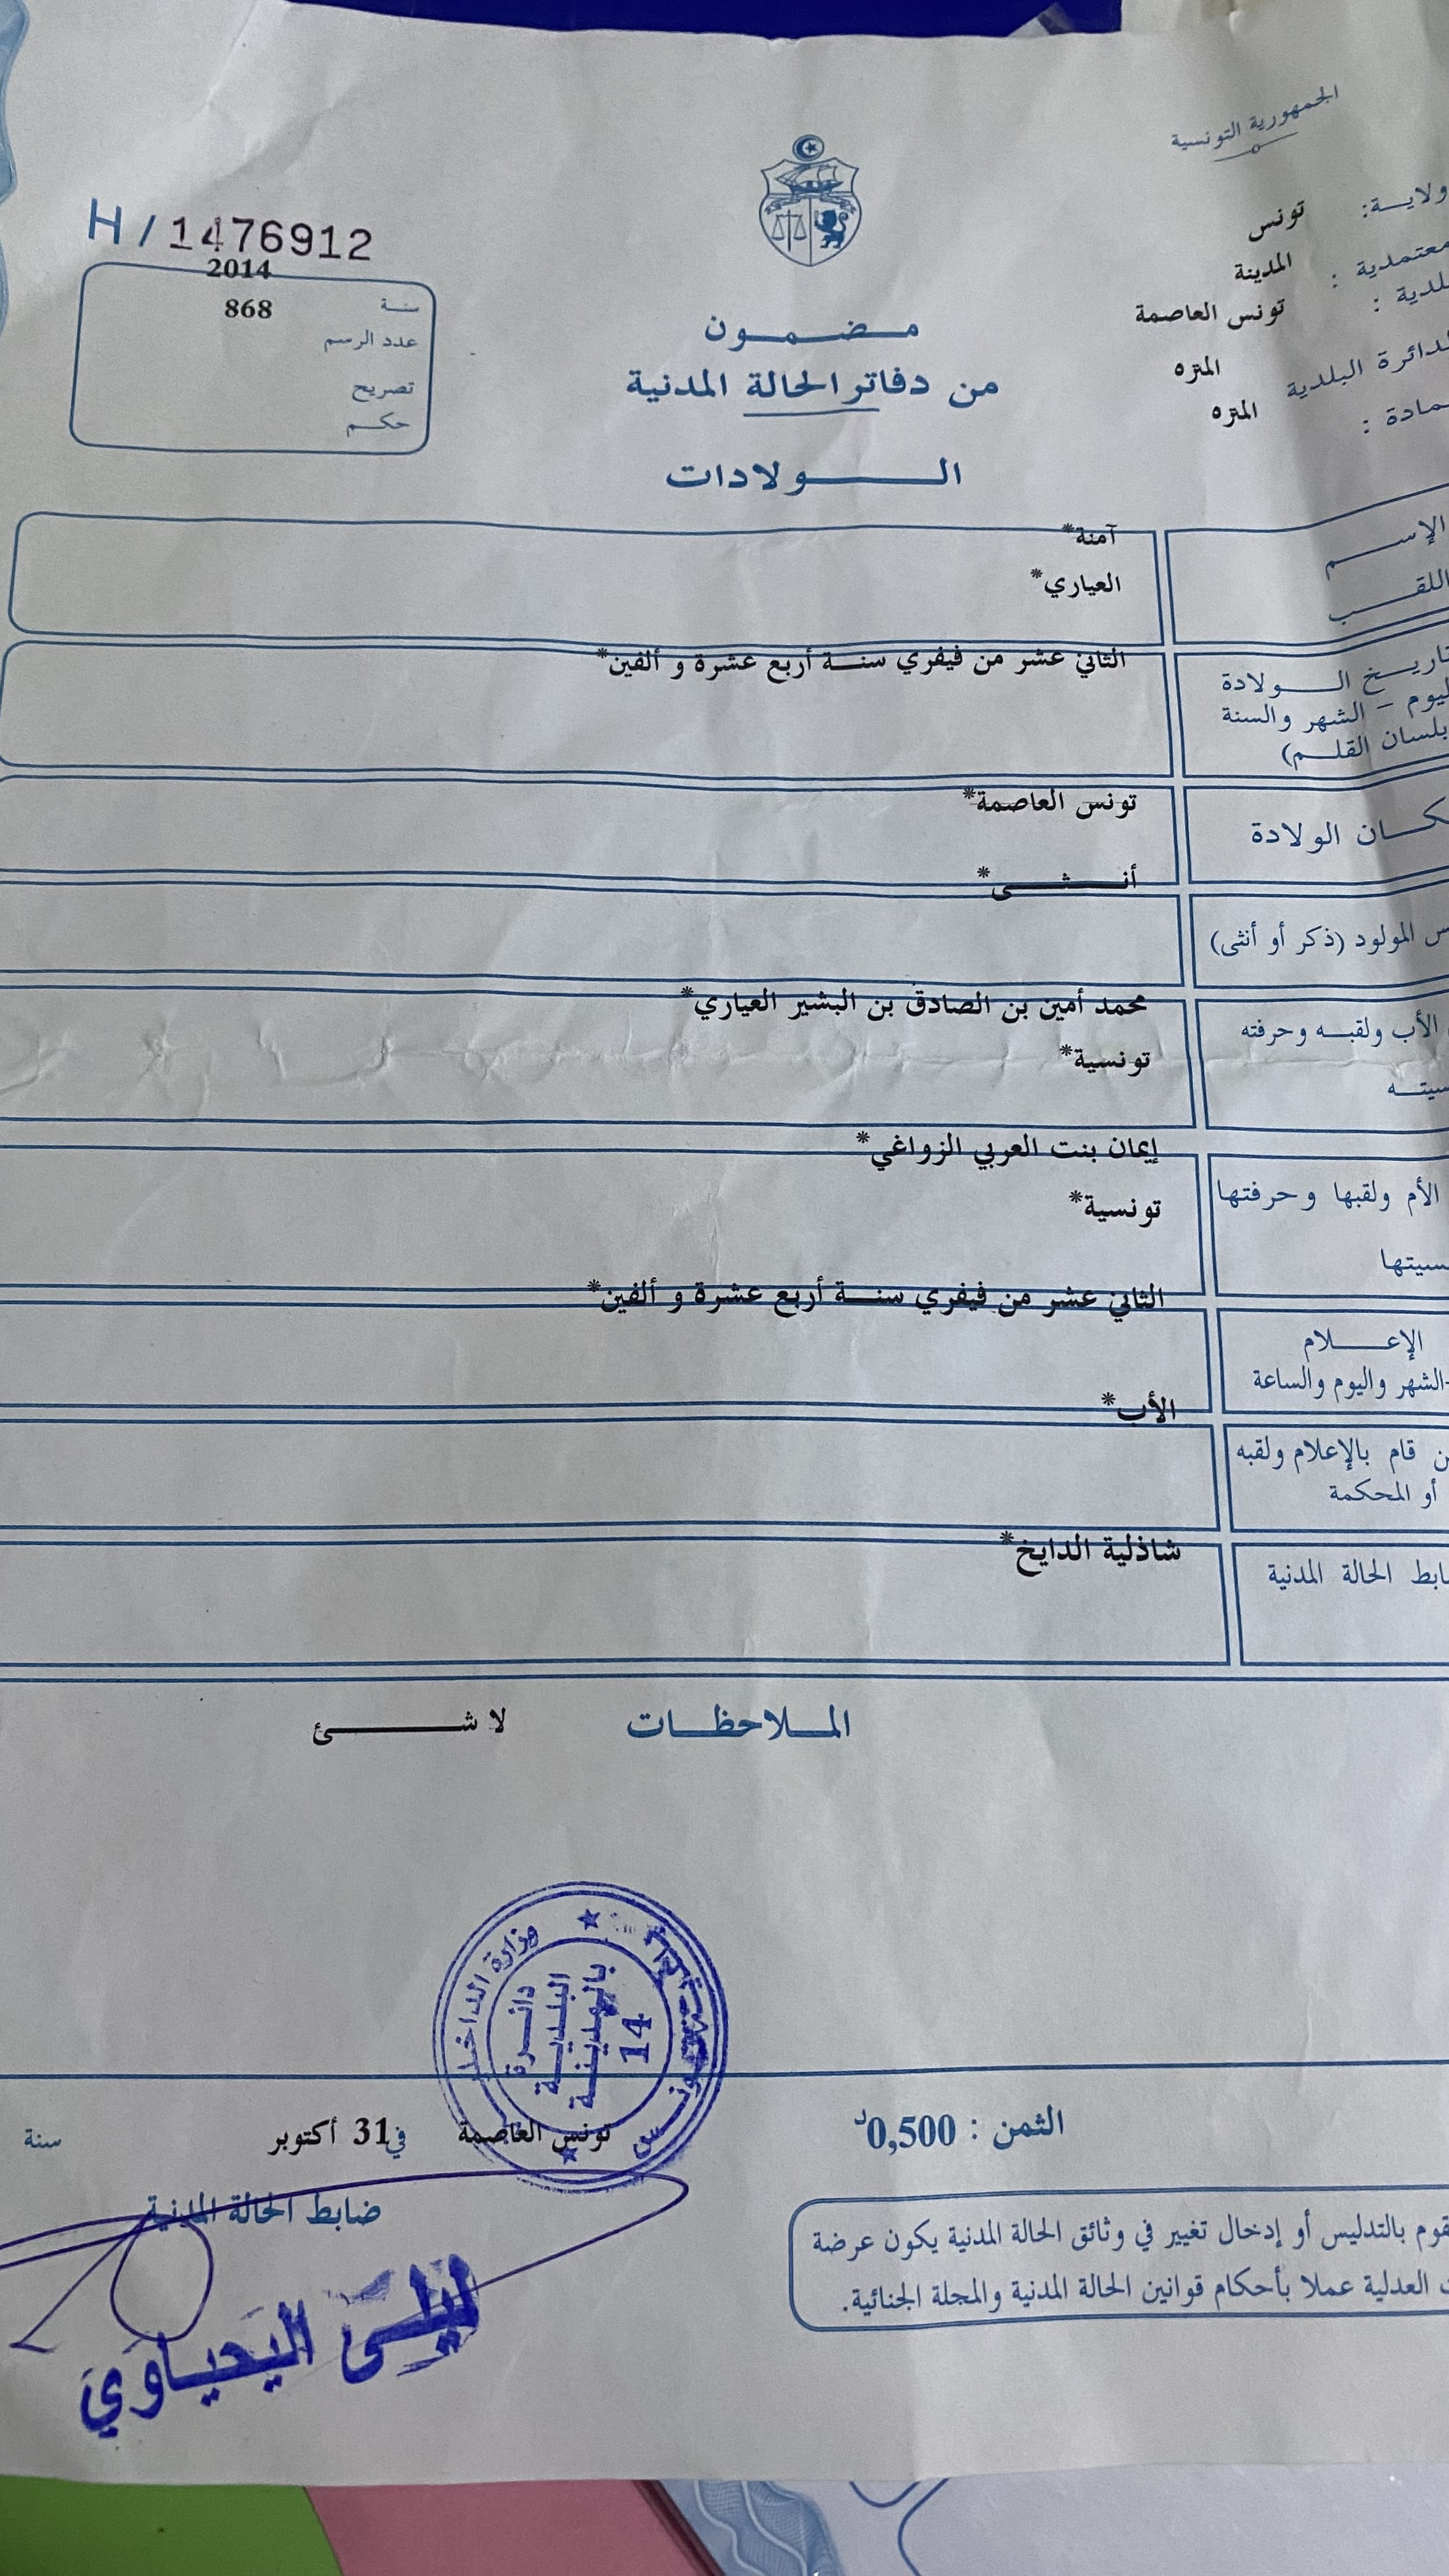 الجمهورية التونسية
ولاية: تونس
معتمدية : المدينة
بلدية : تونس العاصمة
الدائرة البلدية المنزه
عمادة : المنزه
H / 1476912
سنة 2014
عدد الرسم 868
تصريح
حكم
مضمون
من دفاتر الحالة المدنية
الولادات
الإسم آمنة*
اللقب العياري*
تاريخ الولادة الثاني عشر من فيفري سنة أربع عشرة و ألفين*
اليوم - الشهر والسنة
بلسان القلم)
مكان الولادة تونس العاصمة*
أنثى*
المولود (ذكر أو أنثى)
الأب ولقبه وحرفته محمد أمين بن الصادق بن البشير العياري*
تونسية*
الأم ولقبها وحرفتها إيمان بنت العربي الزواغي*
تونسية*
الإعلام الثاني عشر من فيفري سنة أربع عشرة و ألفين*
الشهر واليوم والساعة
الأب*
قام بالإعلام ولقبه
أو المحكمة
شاذلية الدايخ*
ضابط الحالة المدنية
الملاحظات لا شئ
وزارة الداخلية
دائرة
البلدية
بالمدينة
14
تونس
الثمن : 0,500د
تونس العاصمة في 31 أكتوبر سنة
ضابط الحالة المدنية
ليلى اليحياوي
يقوم بالتدليس أو إدخال تغيير في وثائق الحالة المدنية يكون عرضة
العدلية عملا بأحكام قوانين الحالة المدنية والمجلة الجنائية.